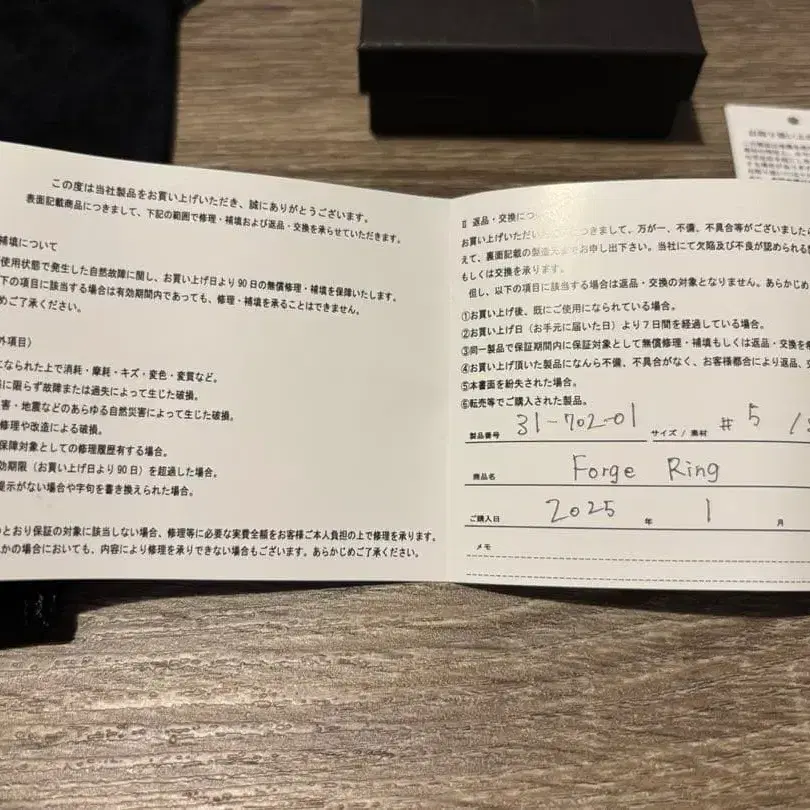 この度は当社製品をお買い上げいただき、誠にありがとうございます。
表面記載商品につきまして、下記の範囲で修理・補填および返品・交換を承らせていただきます。
補填について
使用状態で発生した自然故障に関し、お買い上げ日より90日の無償修理・補填を保障いたします。
下の項目に該当する場合は有効期間内であっても、修理・補填を承ることはできません。
めご了承ください。
外項目）
になられた上で消耗・摩耗・キズ・変色・変質など。
に限らず故障または過失によって生じた破損。
害・地震などのあらゆる自然災害によって生じた破損。
修理や改造による破損。
保障対象としての修理履歴有する場合。
効期限（お買い上げ日より90日）を超過した場合。
提示がない場合や字句を書き換えられた場合。
のとおり保証の対象に該当しない場合、修理等に必要な実費全額をお客様ご本人負担の上で修理を承ります。
かの場合においても、内容により修理を承りできない場合もございます。あらかじめご了承ください。
Ⅱ 返品・交換につ
お買い上げいただい につきまして、万が一、不備、不具合等がございましたら
えて、裏面記載の製造 までお申し出下さい。当社にて欠陥及び不良が認められる
もしくは交換を承ります。
但し、以下の項目に該当する場合は返品・交換の対象となりません。あらかじめ
①お買い上げ後、既にご使用になられている場合。
②お買い上げ日（お手元に届いた日）より7日間を経過している場合。
③同一製品で保証期間内に保証対象として無償修理・補填もしくは返品・交換を
④お買い上げ頂いた製品になんら不備、不具合がなく、お客様都合により返品、
⑤本書面を紛失された場合。
⑥転売等でご購入された製品。
製品番号 31-702-01 サイズ / 素材 #5 /
商品名 Forge Ring
ご購入日 2025 年 1 月
メモ